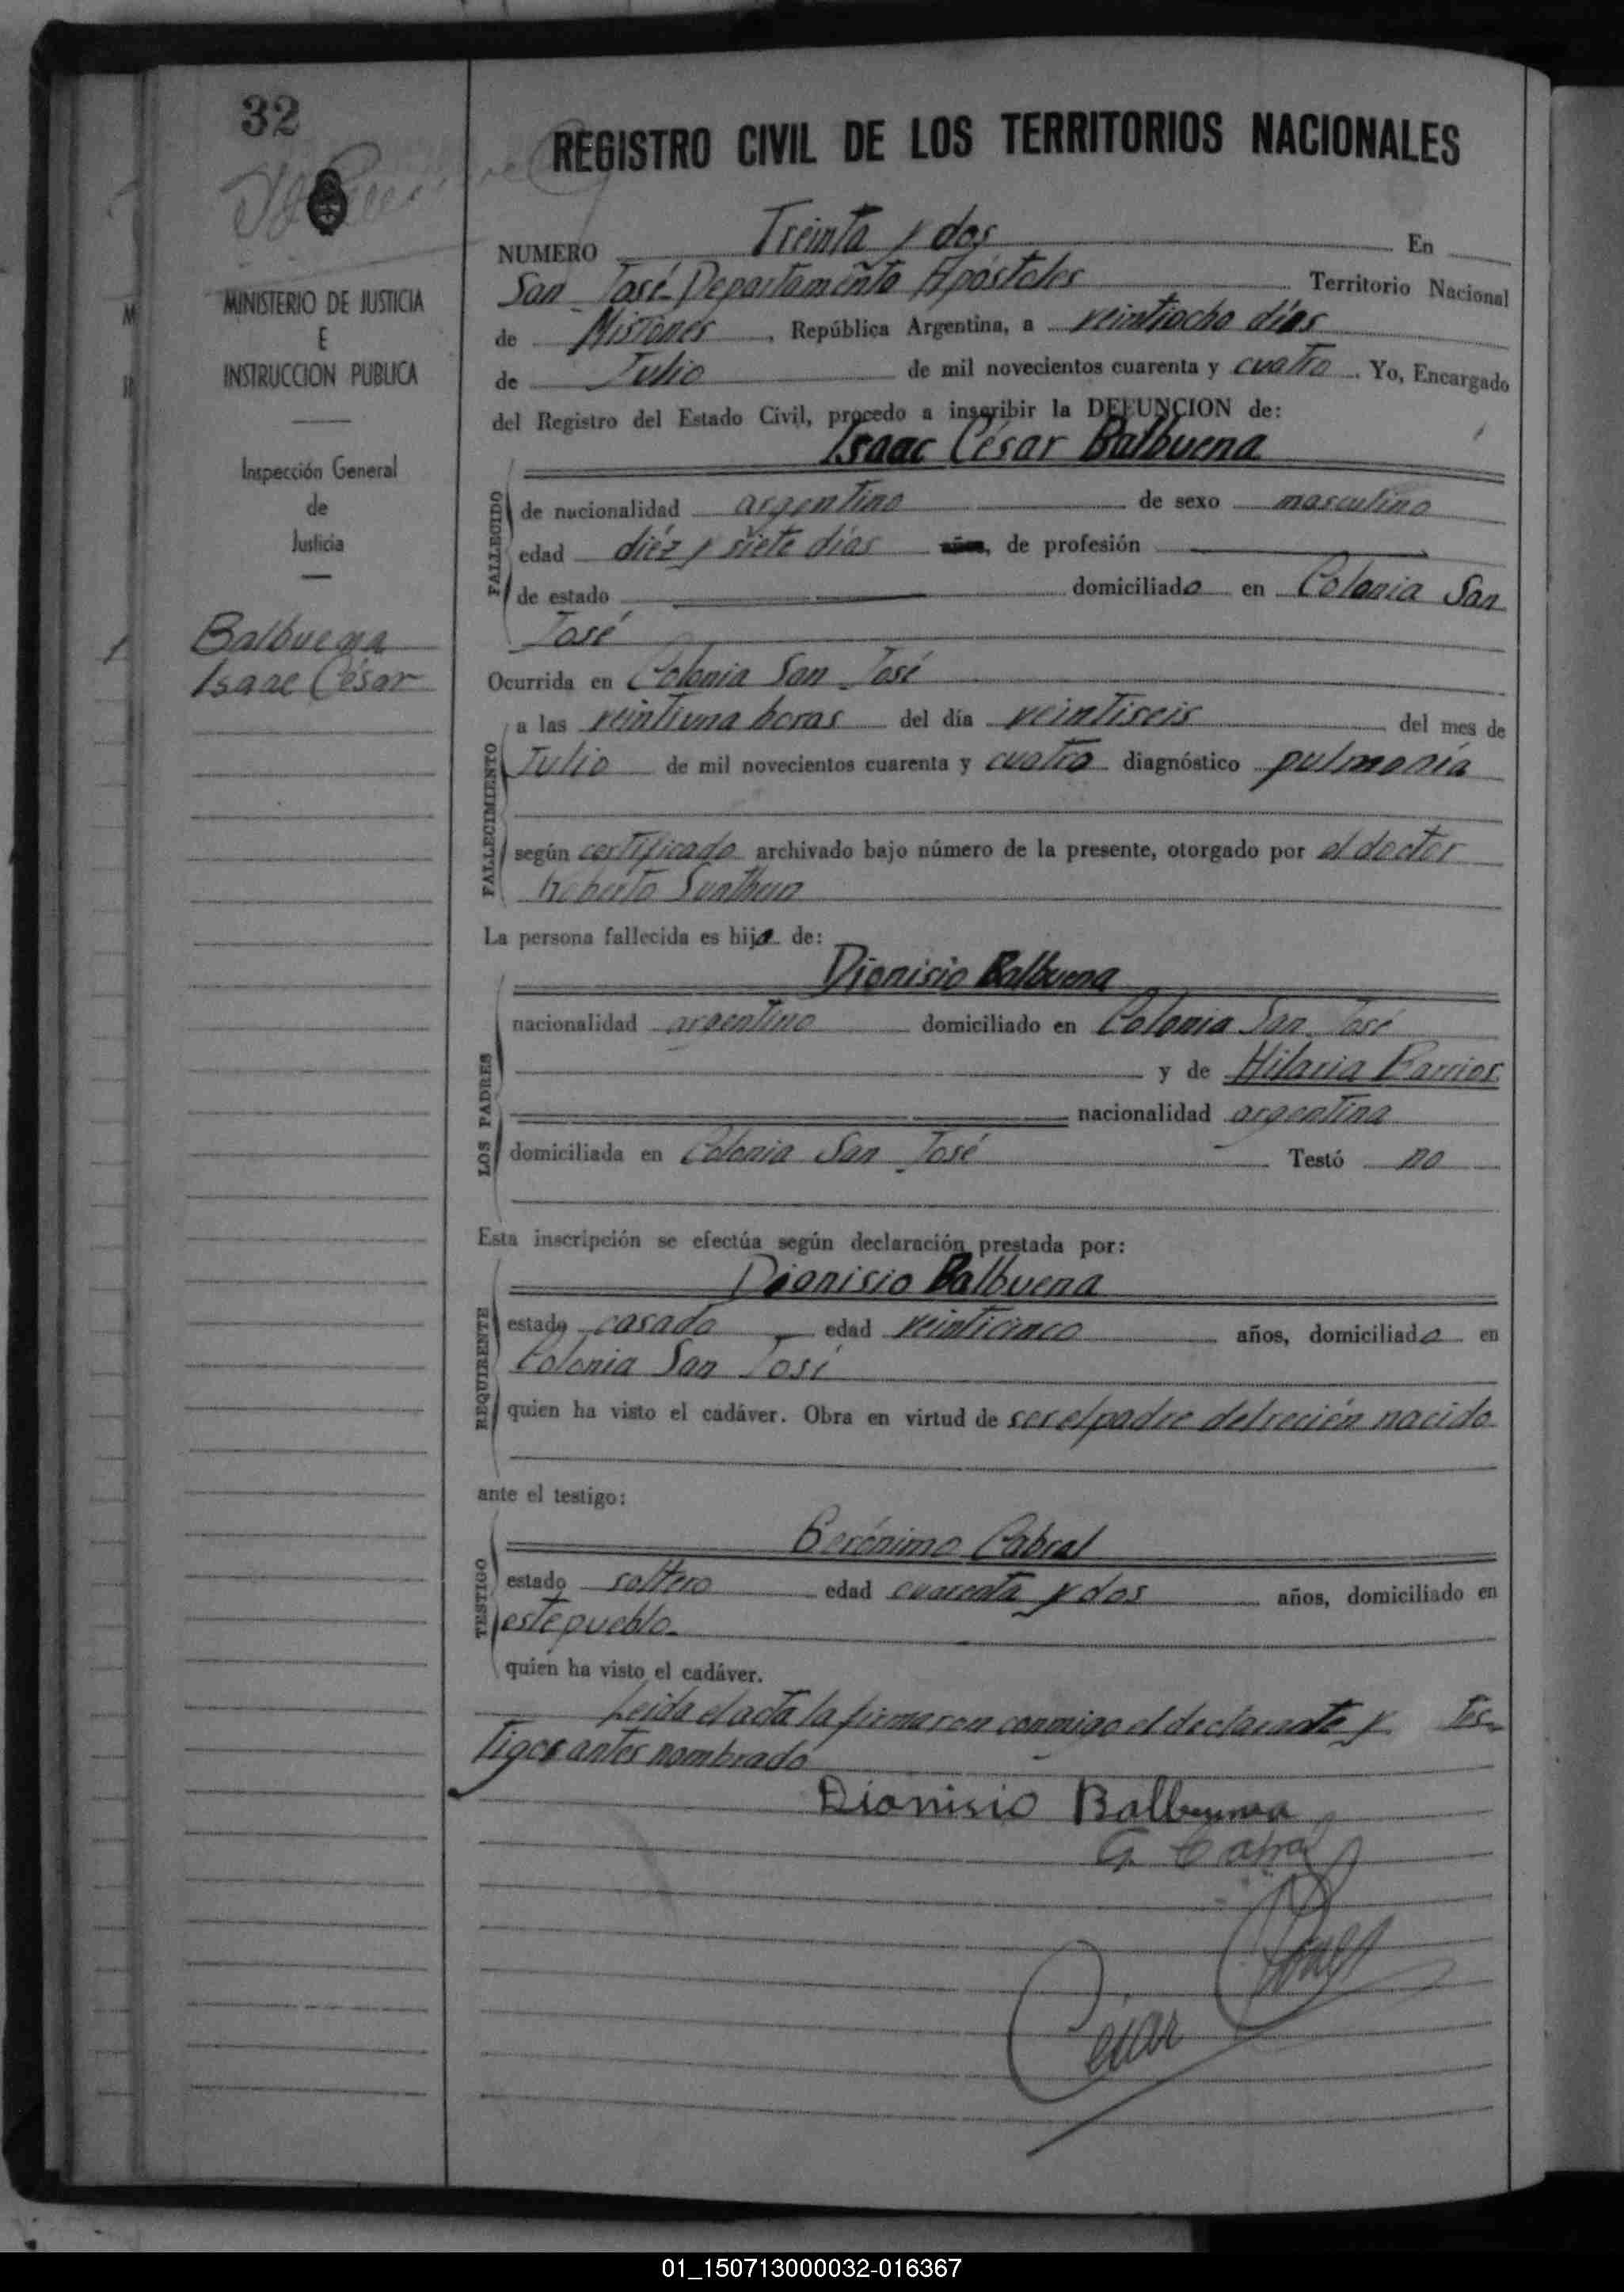 32
REGISTRO CIVIL DE LOS TERRITORIOS NACIONALES
MINISTERIO DE JUSTICIA
E
INSTRUCCION PUBLICA
Inspección General
de
Justicia
1 Balbuena
Isaac César
NUMERO Treinta y dos En
San José Departamento Apóstoles Territorio Nacional
de Misiones, República Argentina, a veintiocho días
de Julio de mil novecientos cuarenta y cuatro. Yo, Encargado
del Registro del Estado Civil, procedo a inscribir la DEFUNCION de:
Isaac César Balbuena
FALLECIDO
de nacionalidad argentino de sexo masculino
edad diéz y siete días años, de profesión
de estado domiciliado en Colonia San
José
Ocurrida en Colonia San José
FALLECIMIENTO
a las veintiuna horas del día veintiseis del mes de
Julio de mil novecientos cuarenta y cuatro diagnóstico pulmonía
según certificado archivado bajo número de la presente, otorgado por el doctor
Roberto
La persona fallecida es hijo de:
Dionisio Balbuena
LOS PADRES
nacionalidad argentino domiciliado en Colonia San José
y de Hilaria Barrios
nacionalidad argentina
domiciliada en Colonia San José Testó no
Esta inscripción se efectúa según declaración prestada por:
Dionisio Balbuena
REQUIRENTE
estado casado edad veinticinco años, domiciliado en
Colonia San José
quien ha visto el cadáver. Obra en virtud de ser el padre del recién nacido
ante el testigo:
Gerónimo Cabral
TESTIGO
estado soltero edad cuarenta y dos años, domiciliado en
este pueblo.
quién ha visto el cadáver.
Leída el acta la firmaron conmigo el declarante y Tes-
tigos antes nombrado
Dionisio Balbuena
G. Cabral
César
01_150713000032-016367